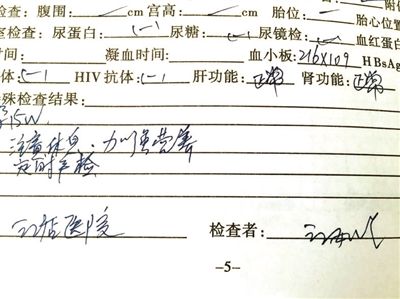 检查：腹围： cm宫高： cm 胎位： 附
室检查：尿蛋白：(-) 尿糖：(-) 尿镜检：(-) 胎心位置
时间： 凝血时间： 血小板：216×109 血红蛋白
体：(-) HIV抗体：(-) 肝功能：正常 肾功能：正常 HBsAg
殊检查结果：
15W
注意休息．加强营养
定时产检
医院 检查者：
-5-